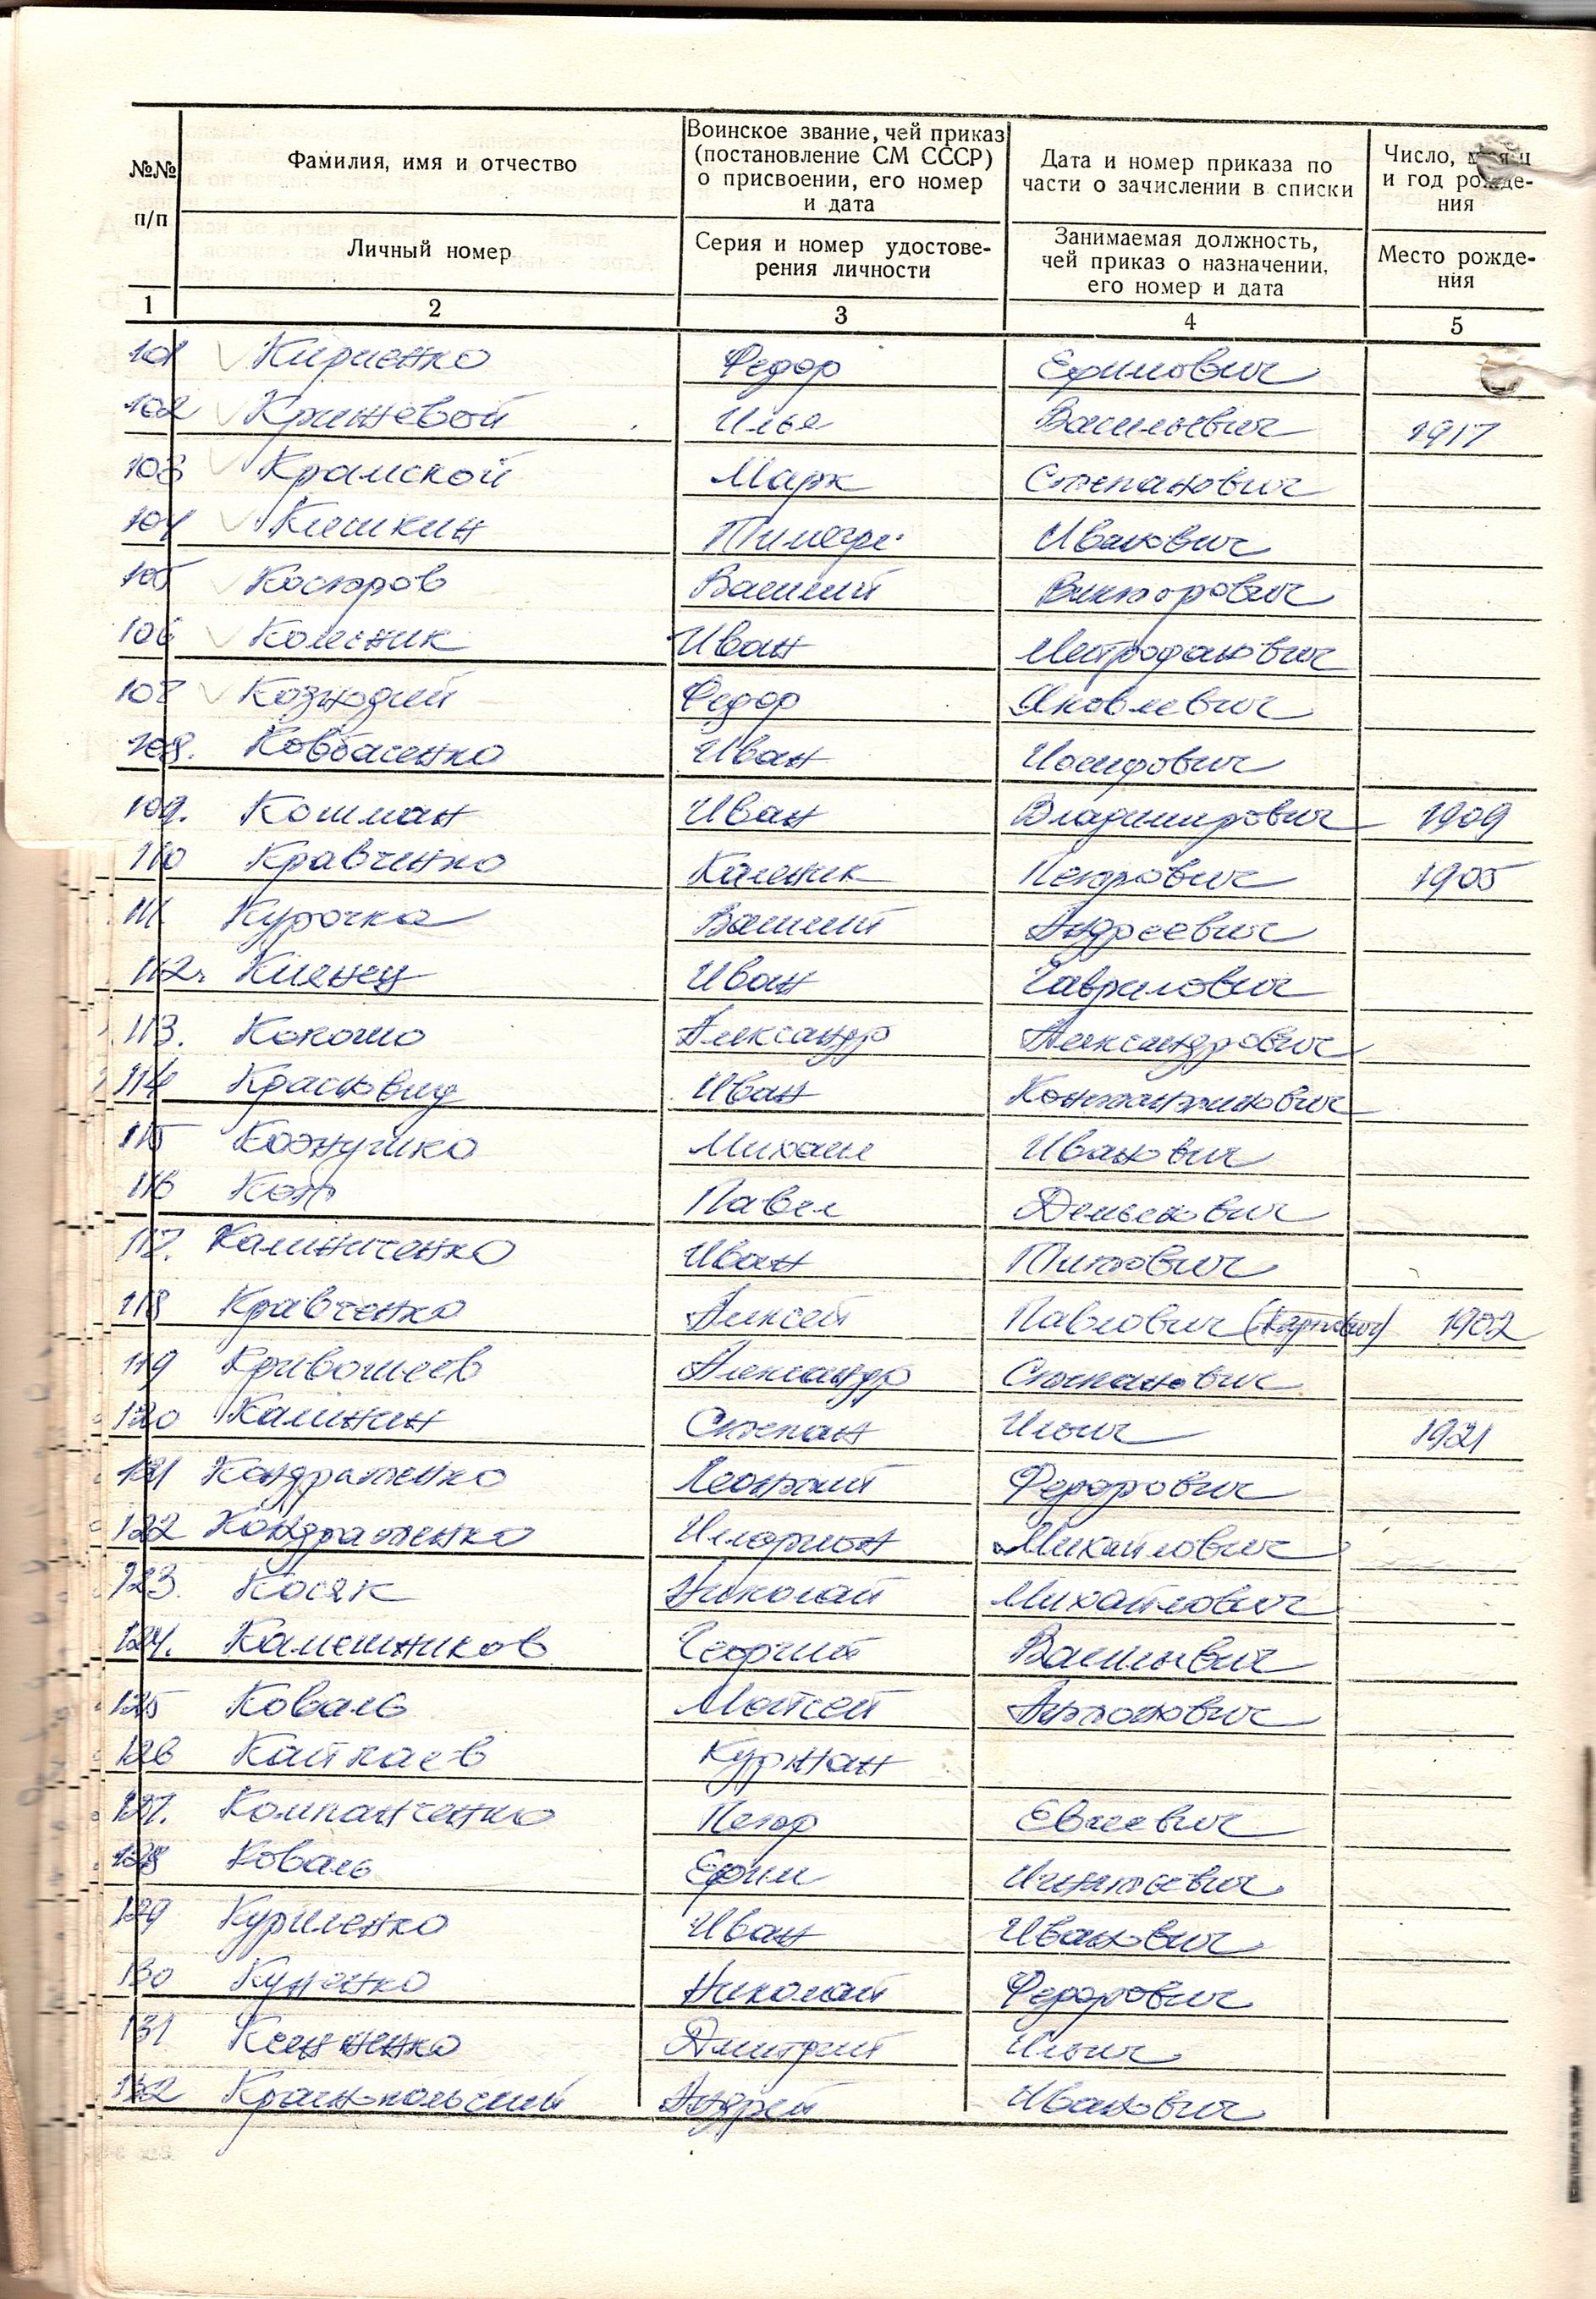 №№ п/п
Фамилия, имя и отчество
Личный номер
Воинское звание, чей приказ (постановление СМ СССР) о присвоении, его номер и дата
Серия и номер удостоверения личности
Дата и номер приказа по части о зачислении в списки
Занимаемая должность, чей приказ о назначении, его номер и дата
Число, месяц и год рождения
Место рождения
1 2 3 4 5
101 Кириенко Федор Ефимович
102 Крижевой Илья Васильевич 1917
103 Крамской Марк Степанович
104 Кишкин Иванович
105 Костров Василий Викторович
106 Колесник Иван Митрофанович
107 Федор Яковлевич
108. Ковбасенко Иван Иосифович
109. Кошман Иван Владимирович 1909
110 Кравченко Каленик Петрович 1905
111. Курочка Василий Андреевич
112. Иван Гаврилович
113. Кокошо Александр Александрович
114 Красновид Иван Константинович
115 Кожушко Михаил Иванович
116 Кот Павел Демьянович
117. Калиниченко Иван Титович
118 Кравченко Алексей Павлович (Карпович) 1902
119 Кривошеев Александр Степанович
120 Калинин Степан Ильич 1921
121 Кондратенко Леонтий Федорович
122 Кондратенко Иларион Михайлович
123. Косяк Николай Михайлович
124. Калешников Георгий Васильевич
125 Коваль Мойсей Антонович
126 Каипаев Курман
127. Компанченко Петр Евсеевич
128 Коваль Ефим Игнатьевич
129 Куриленко Иван Иванович
130 Куценко Николай Федорович
131 Дмитрий Ильич
132 Краснопольский Андрей Иванович